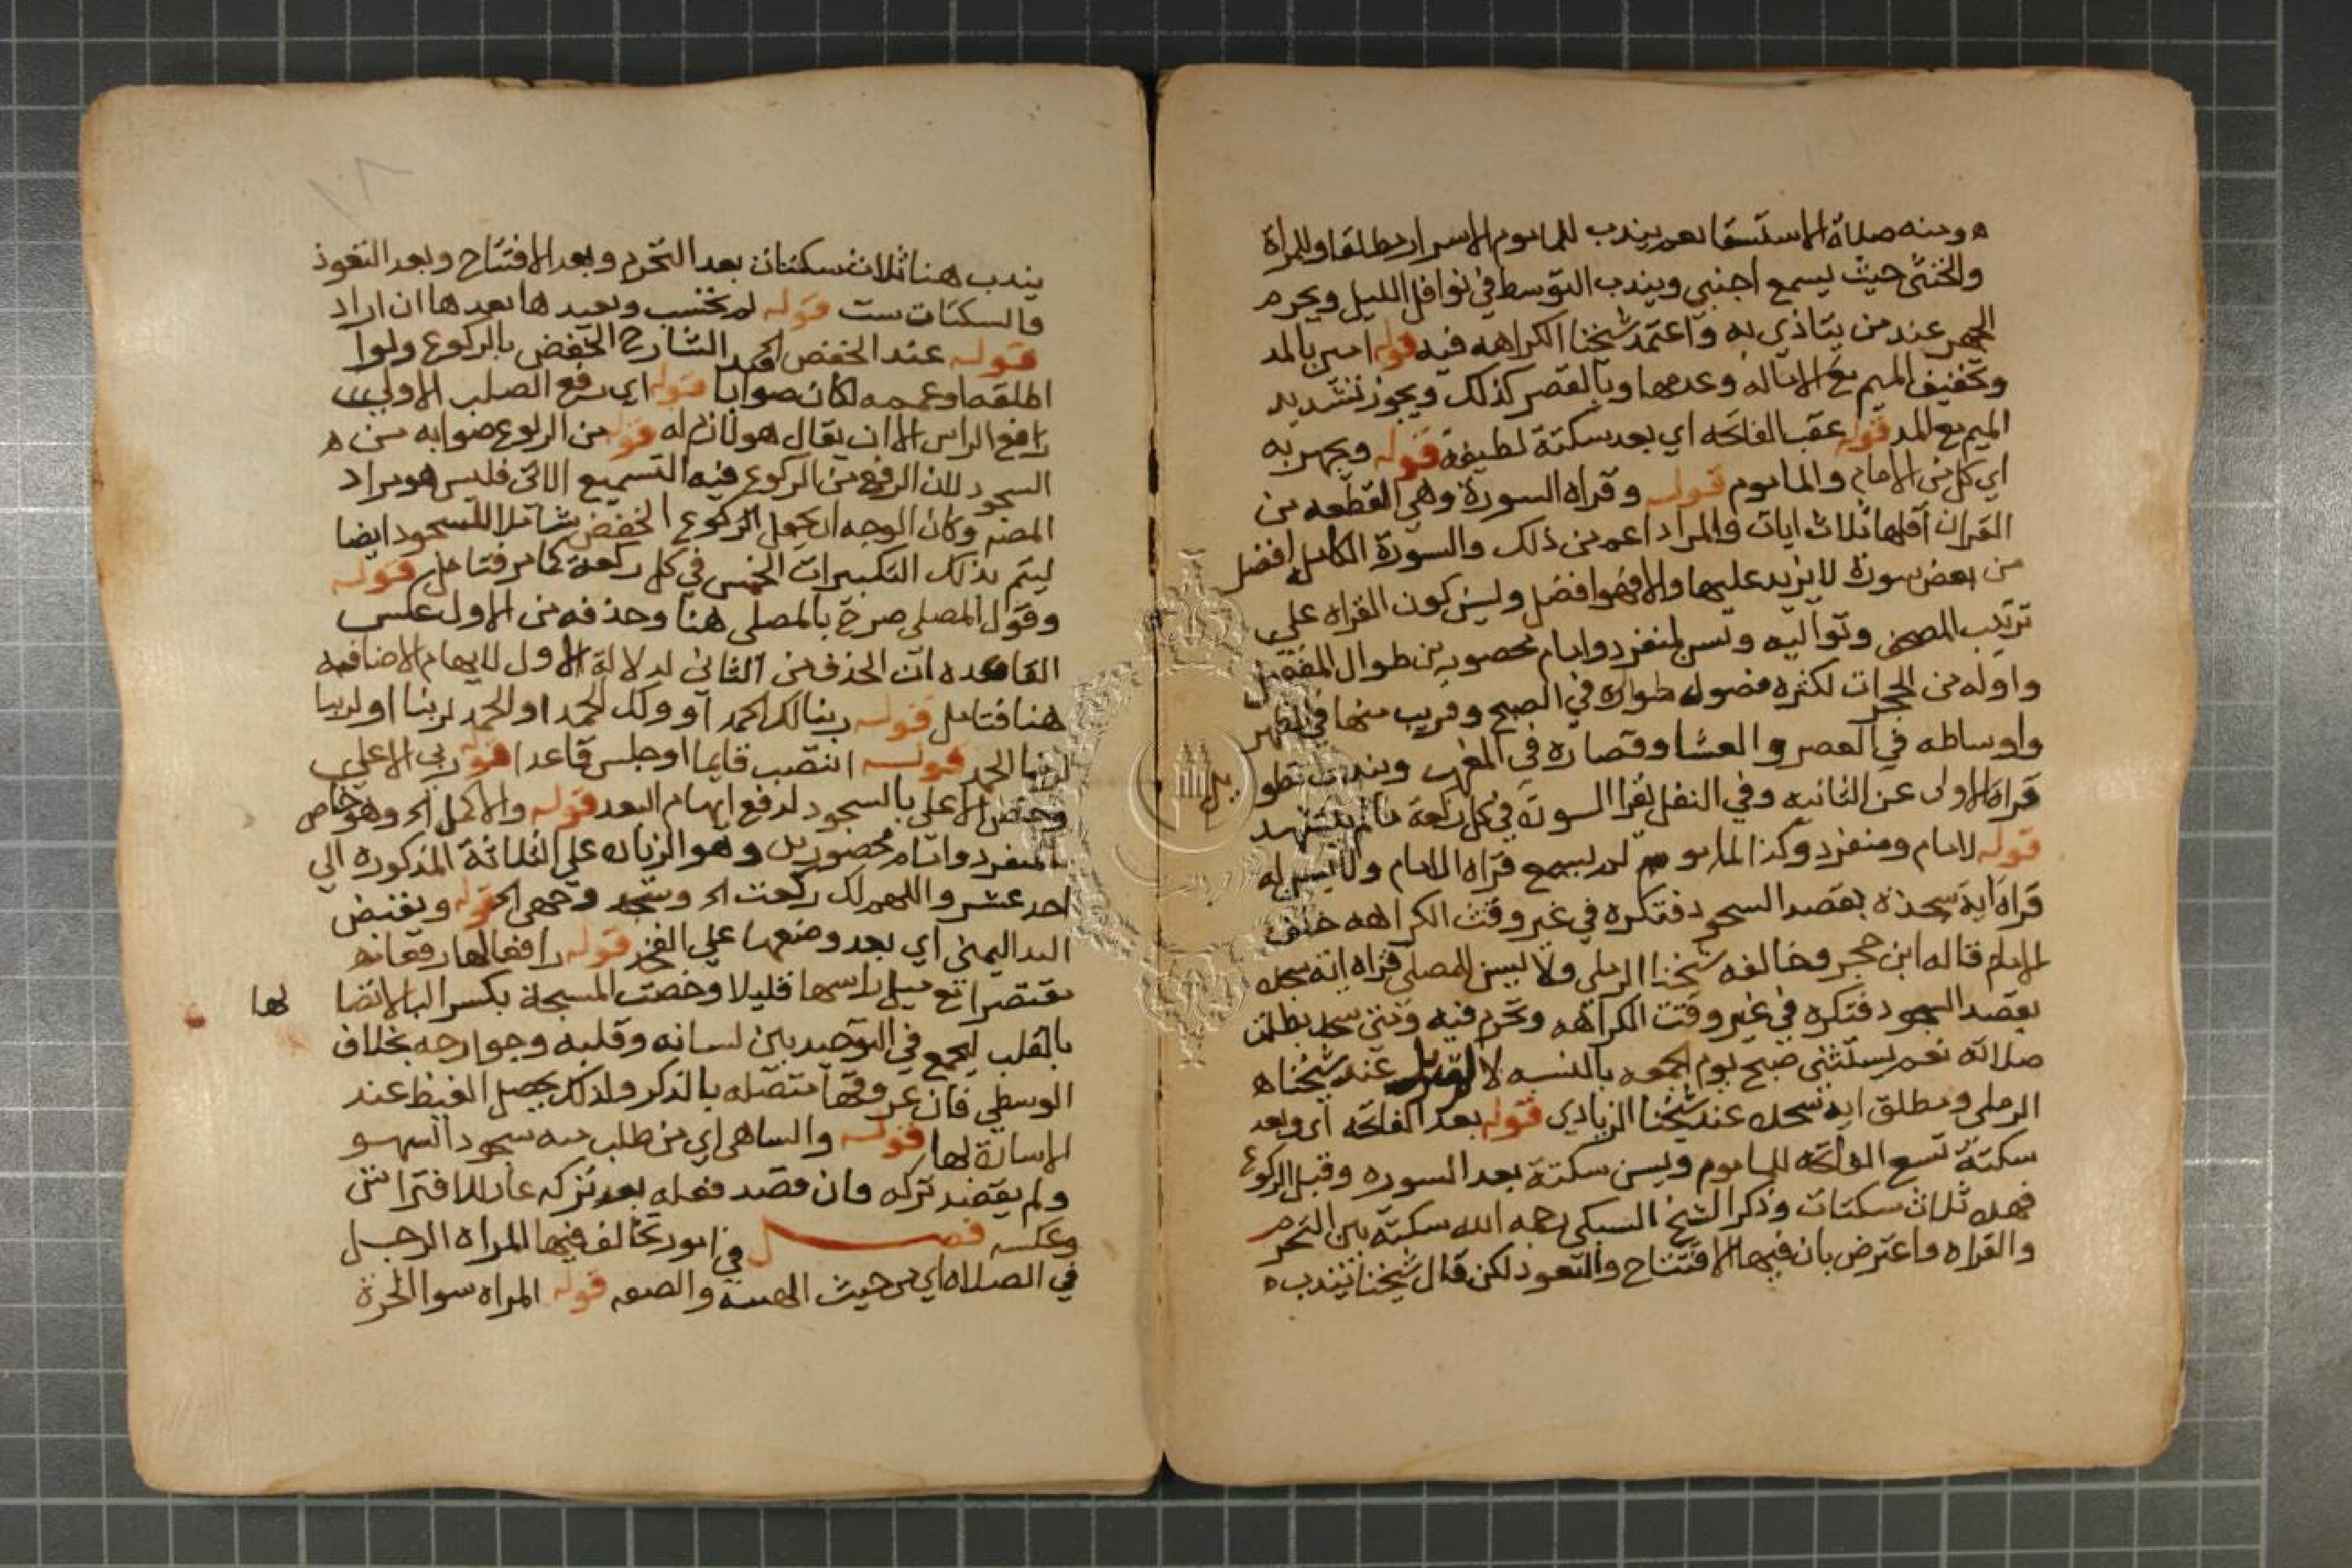 ومنه صلاة الاستسقا نعم يندب للماموم الاسرار مطلقا وللمراة
والخنثى حيث يسمع اجنبي ويندب التوسط في نوافل الليل ويحرم
الجهر عند من يتاذي به واعتمد شيخنا الكراهه فيه قوله امين بالمد
وتخفيف الميم مع الاماله وعدمها وبالقصر كذلك ويجوز تشديد
الميم مع المد قوله عقب الفاتحه اي بعد سكتة لطيفة قوله ويجهر به
اي كل من الامام والماموم قوله وقراه السورة وهي القطعه من
القران اقلها ثلاث ايات والمراد اعم من ذلك والسورة الكامل افضل
من بعض سورة لا يزيد عليها والا فهو افضل وليسن كون القراه علي
ترتيب المصحف وتواليه وتسن لمنفرد وامام محصورين طوال المفصل
واوله من الحجرات لكثرة فصوله طواله في الصبح وقريب منها في الظهر
واوساطه في العصر والعشا وقصاره في المغرب ويندب تطويل
قراة الاولى عن الثانيه وفي النفل يقرا السورة في كل ركعة مالم يتشهد
قوله لامام ومنفرد وكذا الماموم لم يسمع قراه الامام ولا يسن له
قراة اية سجدة بقصد السجود فتكره في غير وقت الكراهه خلف
الامام قاله ابن حجر وخالفه شيخنا الرملي ولا يسن للمصلي قراه اية سجده
بقصد السجود فتكره في غير وقت الكراهه وتحرم فيه ومتى سجد بطلت
صلاته نعم يستثنى صبح يوم الجمعه بالنسبه لا لتنزيل عند شيخناه
الرملي ومطلق اية سجده عند شيخنا الزيادي قوله بعد الفاتحه اي وبعد
سكتة تسع الفاتحه للماموم ويسن سكتة بعد السوره وقبل الركوع
فهده ثلاث سكتات وذكر الشيخ السبكي رحمه الله سكتة بين التحرم
والقراه واعترض بان فيها الافتتاح والتعوذ لكن قال شيخنا تندب ه
يندب هنا ثلاث سكتات بعد التحرم وبعد الافتتاح وبعد التعوذ
فالسكتات ست قوله لم تحسب ويعيدها بعدها ان اراد
قوله عند الخفض الخ قيد الشارح الخفض بالركوع ولوا
اطلقه او عممه لكان صوابا قوله اي رفع الصلب الاولي
رافع الراس الا ان يقال هو لازم له قوله من الركوع صوابه من ه
السجود لان الرفع من الركوع فيه التسميع الاتى فليس هو مراد
المصنف وكان الوجه ان يجعل الركوع الخفض شاملا للسجود ايضا
ليتم بذلك التكبيرات الخمس في كل ركعة كما مر فتامل قوله
وقول المصلى صرح بالمصلى هنا وحذفه من الاول عكس
القاعده ان الحذف من الثانى لدلالة الاول لايهام الاضافه
هنا فتامل قوله ربنا لك الحمد او ولك الحمد او الحمد لربنا او لربنا
لربنا الحمد قوله انتصب قايما او جلس قاعدا قوله ربي الاعلي
وخص الاعلي بالسجود لدفع ايهام البعد قوله والاكمل الخ وهو خاص
بالمنفرد وامام محصورين وهو الزيادة علي الثلاثة المذكوره الي
احد عشر واللهم لك ركعت الخ وسجد وجهي الخ قوله ويقبض
اليد اليمنى اي بعد وضعها علي الفخذ قوله رافعا لها رفعا
مقتصرا مع ميل راسها قليلا وخصت المسبحة بكسر البا لاتصا لها
بالقلب ليجمع في التوحيد بين لسانه وقلبه وجوارحه بخلاف
الوسطي فان عروقها متصله بالذكر ولذلك يحصل الغيظ عند
الاشارة لها قوله والساهي اي من طلب منه سجود السهو
ولم يقصد تركه فان قصد فعله بعد تركه عاد للافتراش
وعكسه فصل في امور تخالف فيها المراه الرجل
في الصلاه اي من حيث الهيئة والصفه قوله المراه سوا الحرة